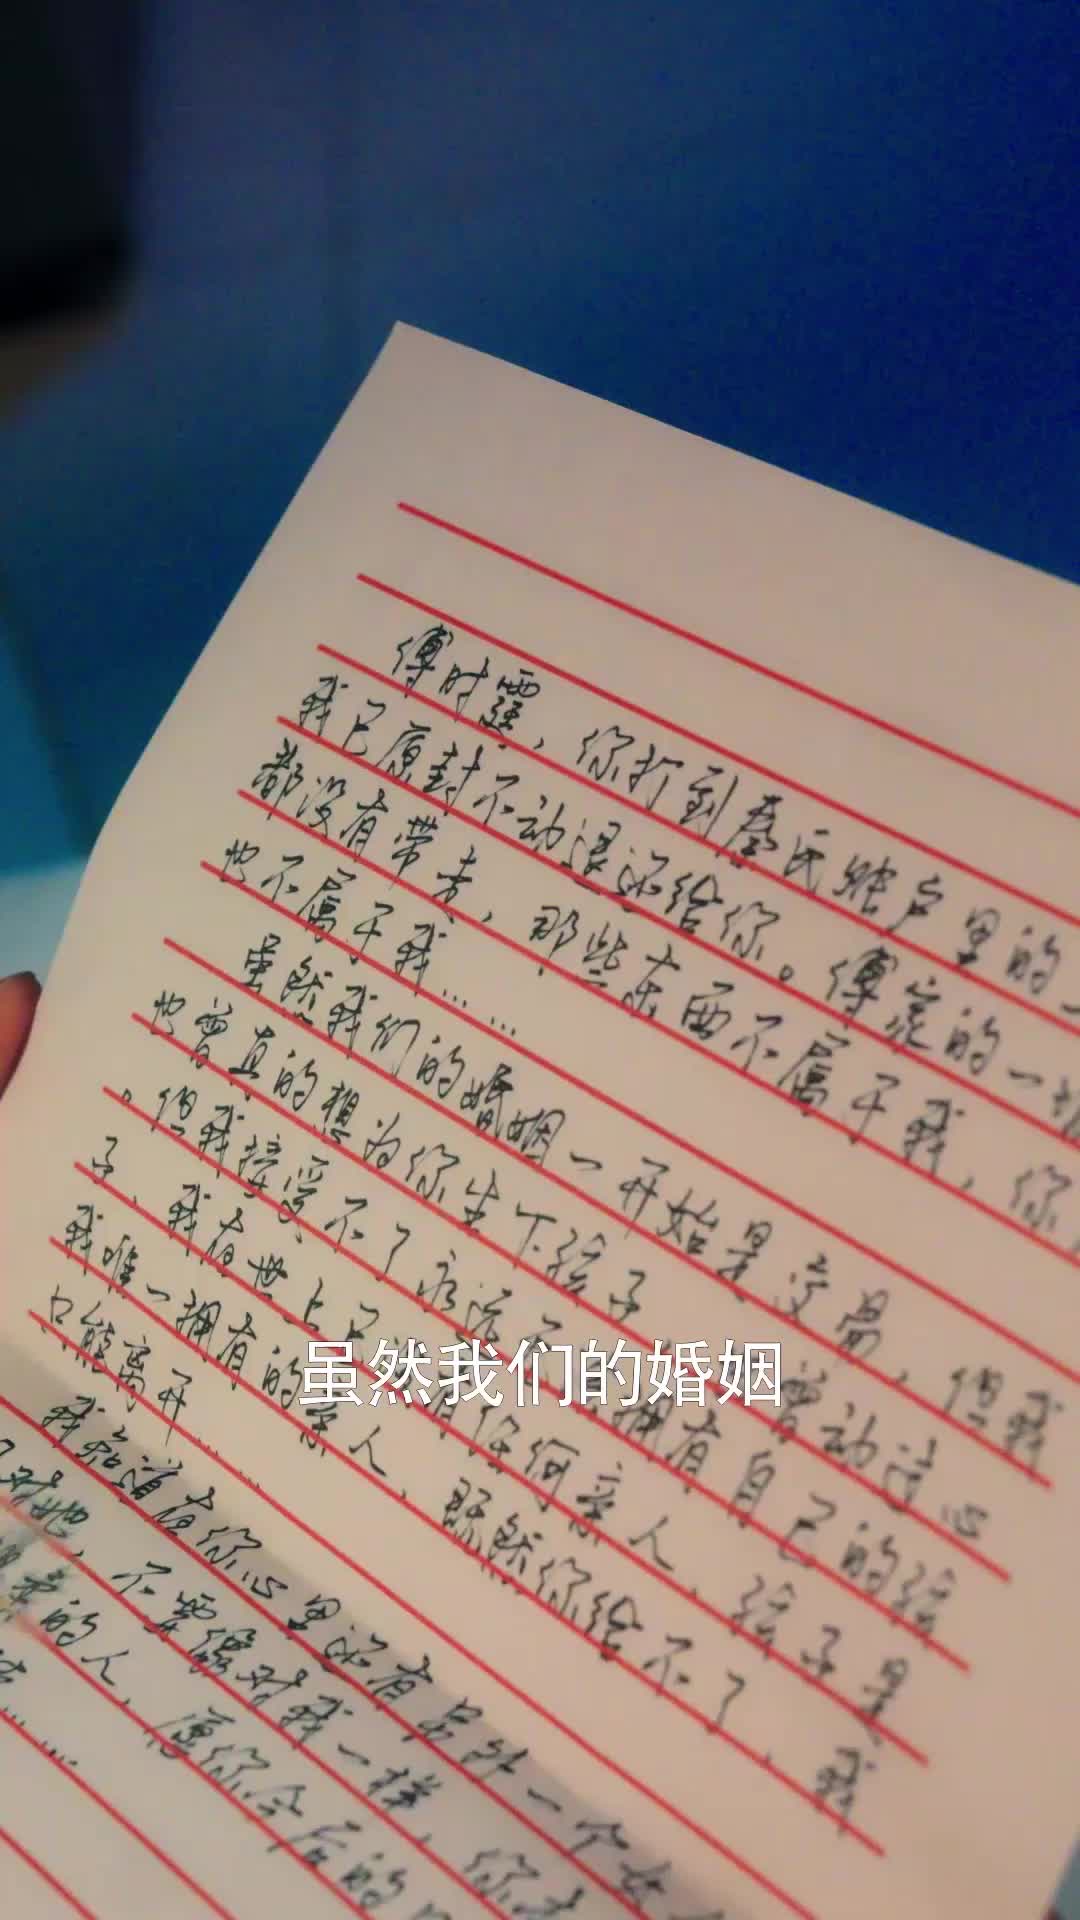 傅时霆，你打到秦氏账户里的
我已原封不动退还给你。傅家的一切
都没有带走，那些东西不属于我，你
也不属于我……
虽然我们的婚姻一开始是交易，但我
也曾真的想为你生下孩子 曾动过心
。但我接受不了永远 拥有自己的孩
子，我在世上已没有任何亲人，孩子是
我唯一拥有的亲人，既然你给不了，我
只能离开……
我知道在你心里还有另外一个女
对她，不要像对我一样，你
的人，愿你今后的
虽然我们的婚姻